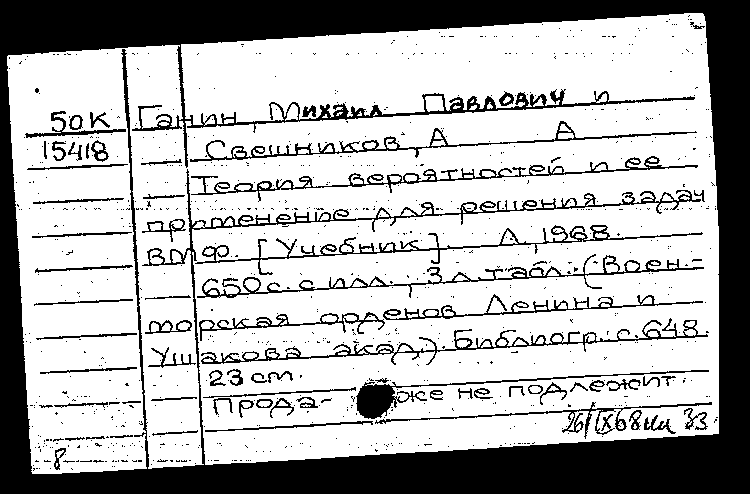 50К Ганин, Михаил Павлович и
15418 Свешников, А А
Теория вероятностей и ее
применение для решения задач
ВМФ. [Учебник]. Л, 1968.
650с. с илл., 3л. табл. (Воен.-
морская орденов Ленина и
Ушакова акад.) Библиогр.: с. 648.
23 cm.
Прода- же не подлежит.
26/IX68 33
8